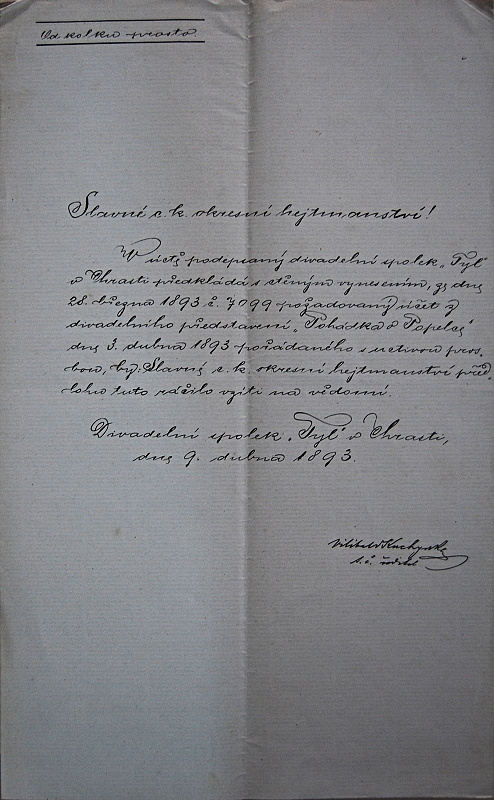 Od kolku prosto.
Slavné c. k. okresní hejtmanství!
V úctě podepsaný divadelní spolek „Tyl“
v Chrasti předkládá s ctěným vynesením, ze dne
28. března 1893 č. 7099 požadovaný účet z
divadelního představení „Pohádka o Popelce“
dne 3. dubna 1893 pořádaného s uctivou pros-
bou, by Slavné c. k. okresní hejtmanství před-
lohu tuto ráčilo vzíti na vědomí.
Divadelní spolek „Tyl“ v Chrasti,
dne 9. dubna 1893.
t. č. ředitel